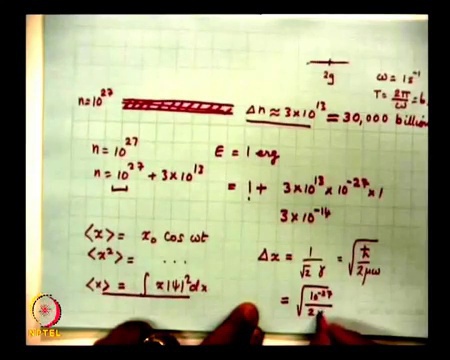 2g
ω = 1 s⁻¹
T = 2π/ω = 6.
n = 10²⁷
Δn ≈ 3×10¹³ = 30,000 billion
n = 10²⁷
E = 1 erg
n = 10²⁷ + 3×10¹³
= 1 + 3×10¹³ × 10⁻²⁷ × 1
3×10⁻¹⁴
⟨x⟩ = x₀ cos ωt
⟨x²⟩ = ...
Δx = 1/(√2 γ) = √(ħ/2μω)
⟨x⟩ = ∫ x|ψ|² dx
= √(10⁻²⁷/2×
NPTEL